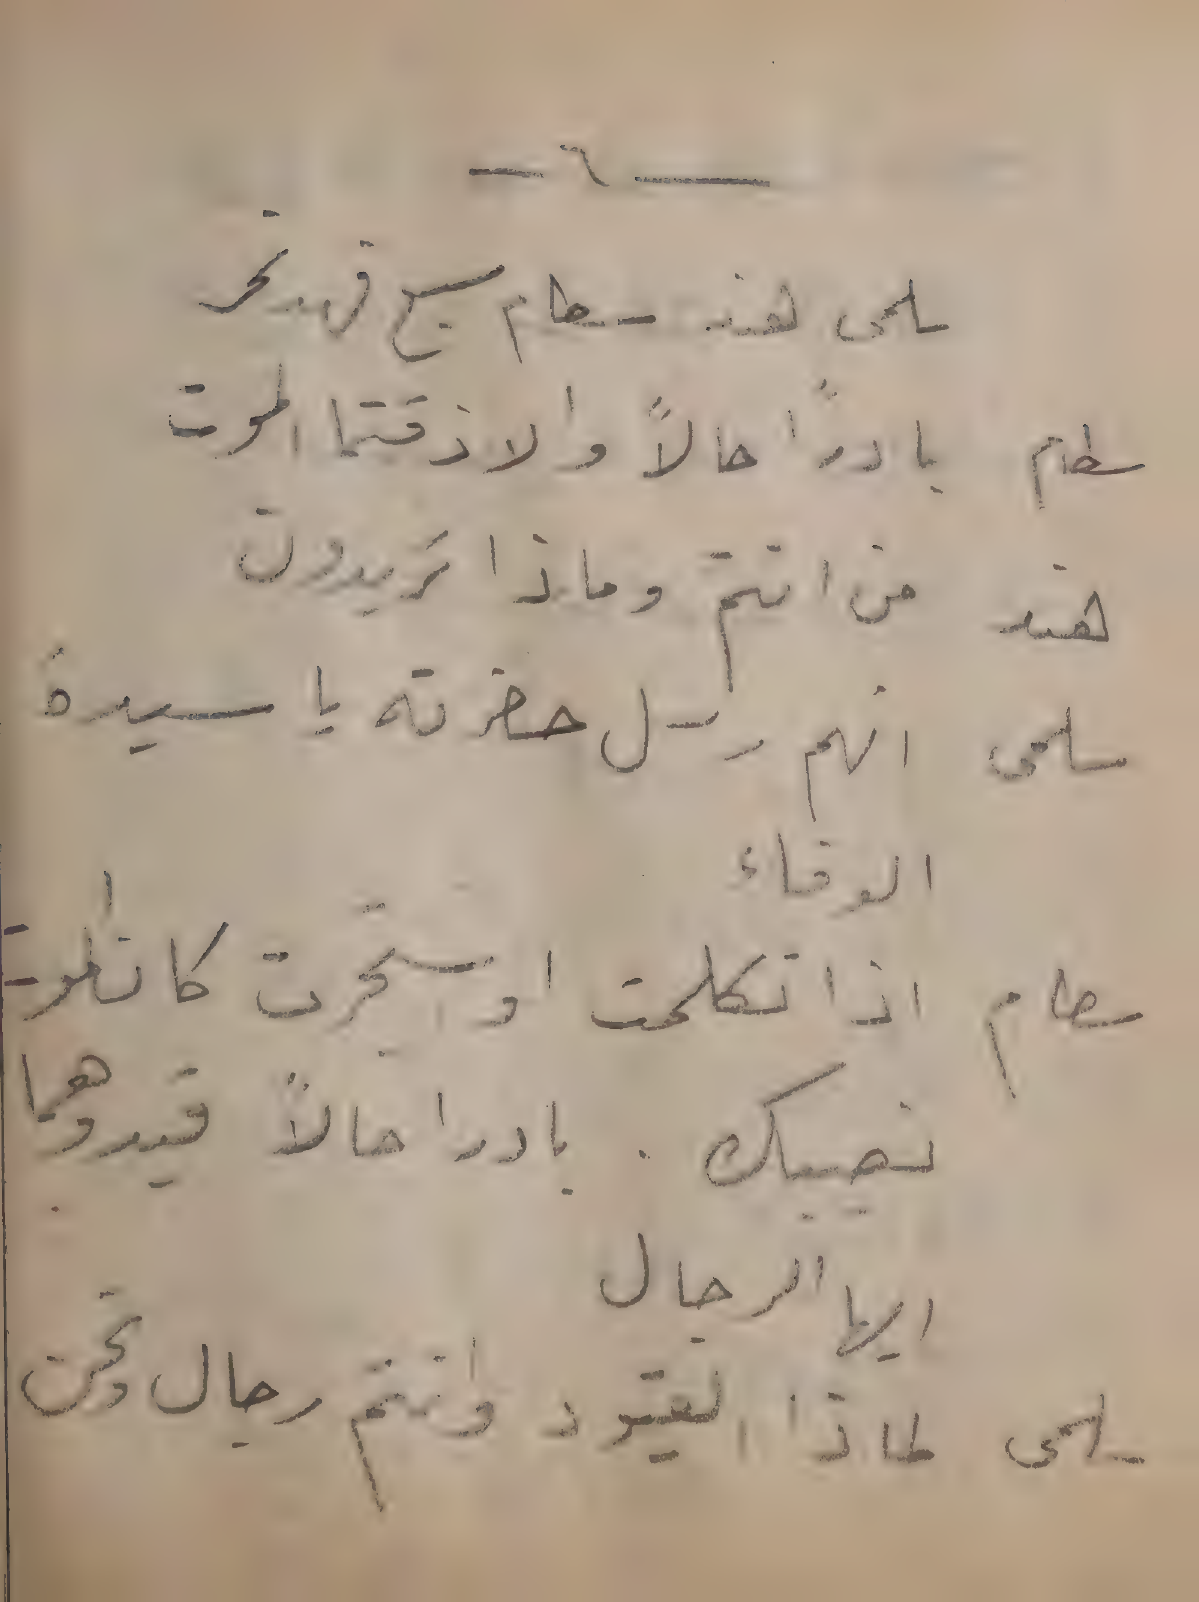 — ٦ —
سلمى هند سطام سبع فهد نحر
سطام بادرا حالاً والا ذقتما الموت
هند من انتم وماذا تريدون
سلمى انهم رسل حضرته يا سيدة
الوفاء
سطام اذا تكلمت او ستجرت كان الموت
نصيبك . بادرا حالاً قيدوهما
ايها الرجال
سلمى لماذا القيود وانتم رجال ونحن